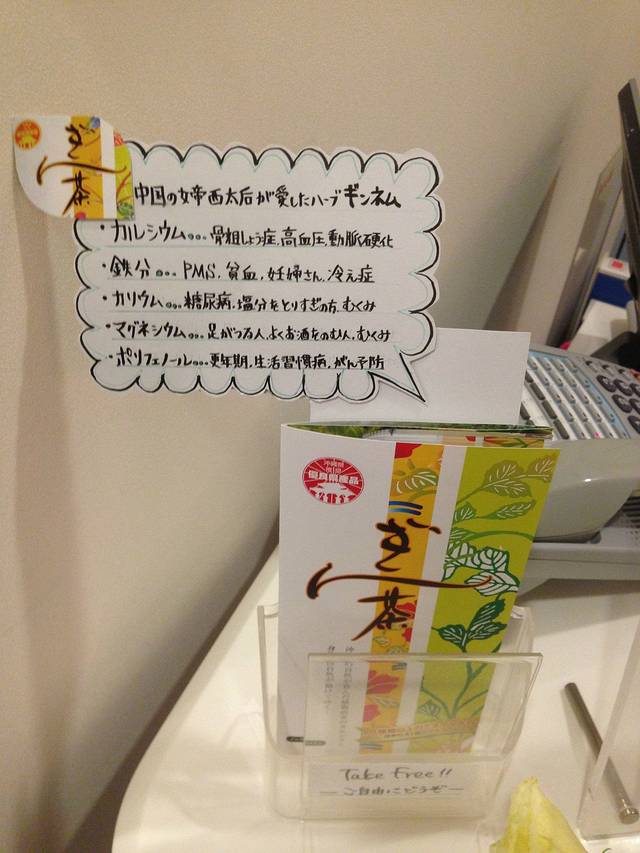 ぎん茶
中国の女帝西太后が愛したハーブギンネム
・カルシウム…骨粗しょう症,高血圧,動脈硬化
・鉄分…PMS,貧血,妊婦さん,冷え症
・カリウム…糖尿病,塩分をとりすぎの方,むくみ
・マグネシウム…足がつる人,よくお酒をのむ人,むくみ
・ポリフェノール…更年期,生活習慣病,がん予防
沖縄県
推奨
優良県産品
ぎん茶
Take Free!!
ーご自由にどうぞー